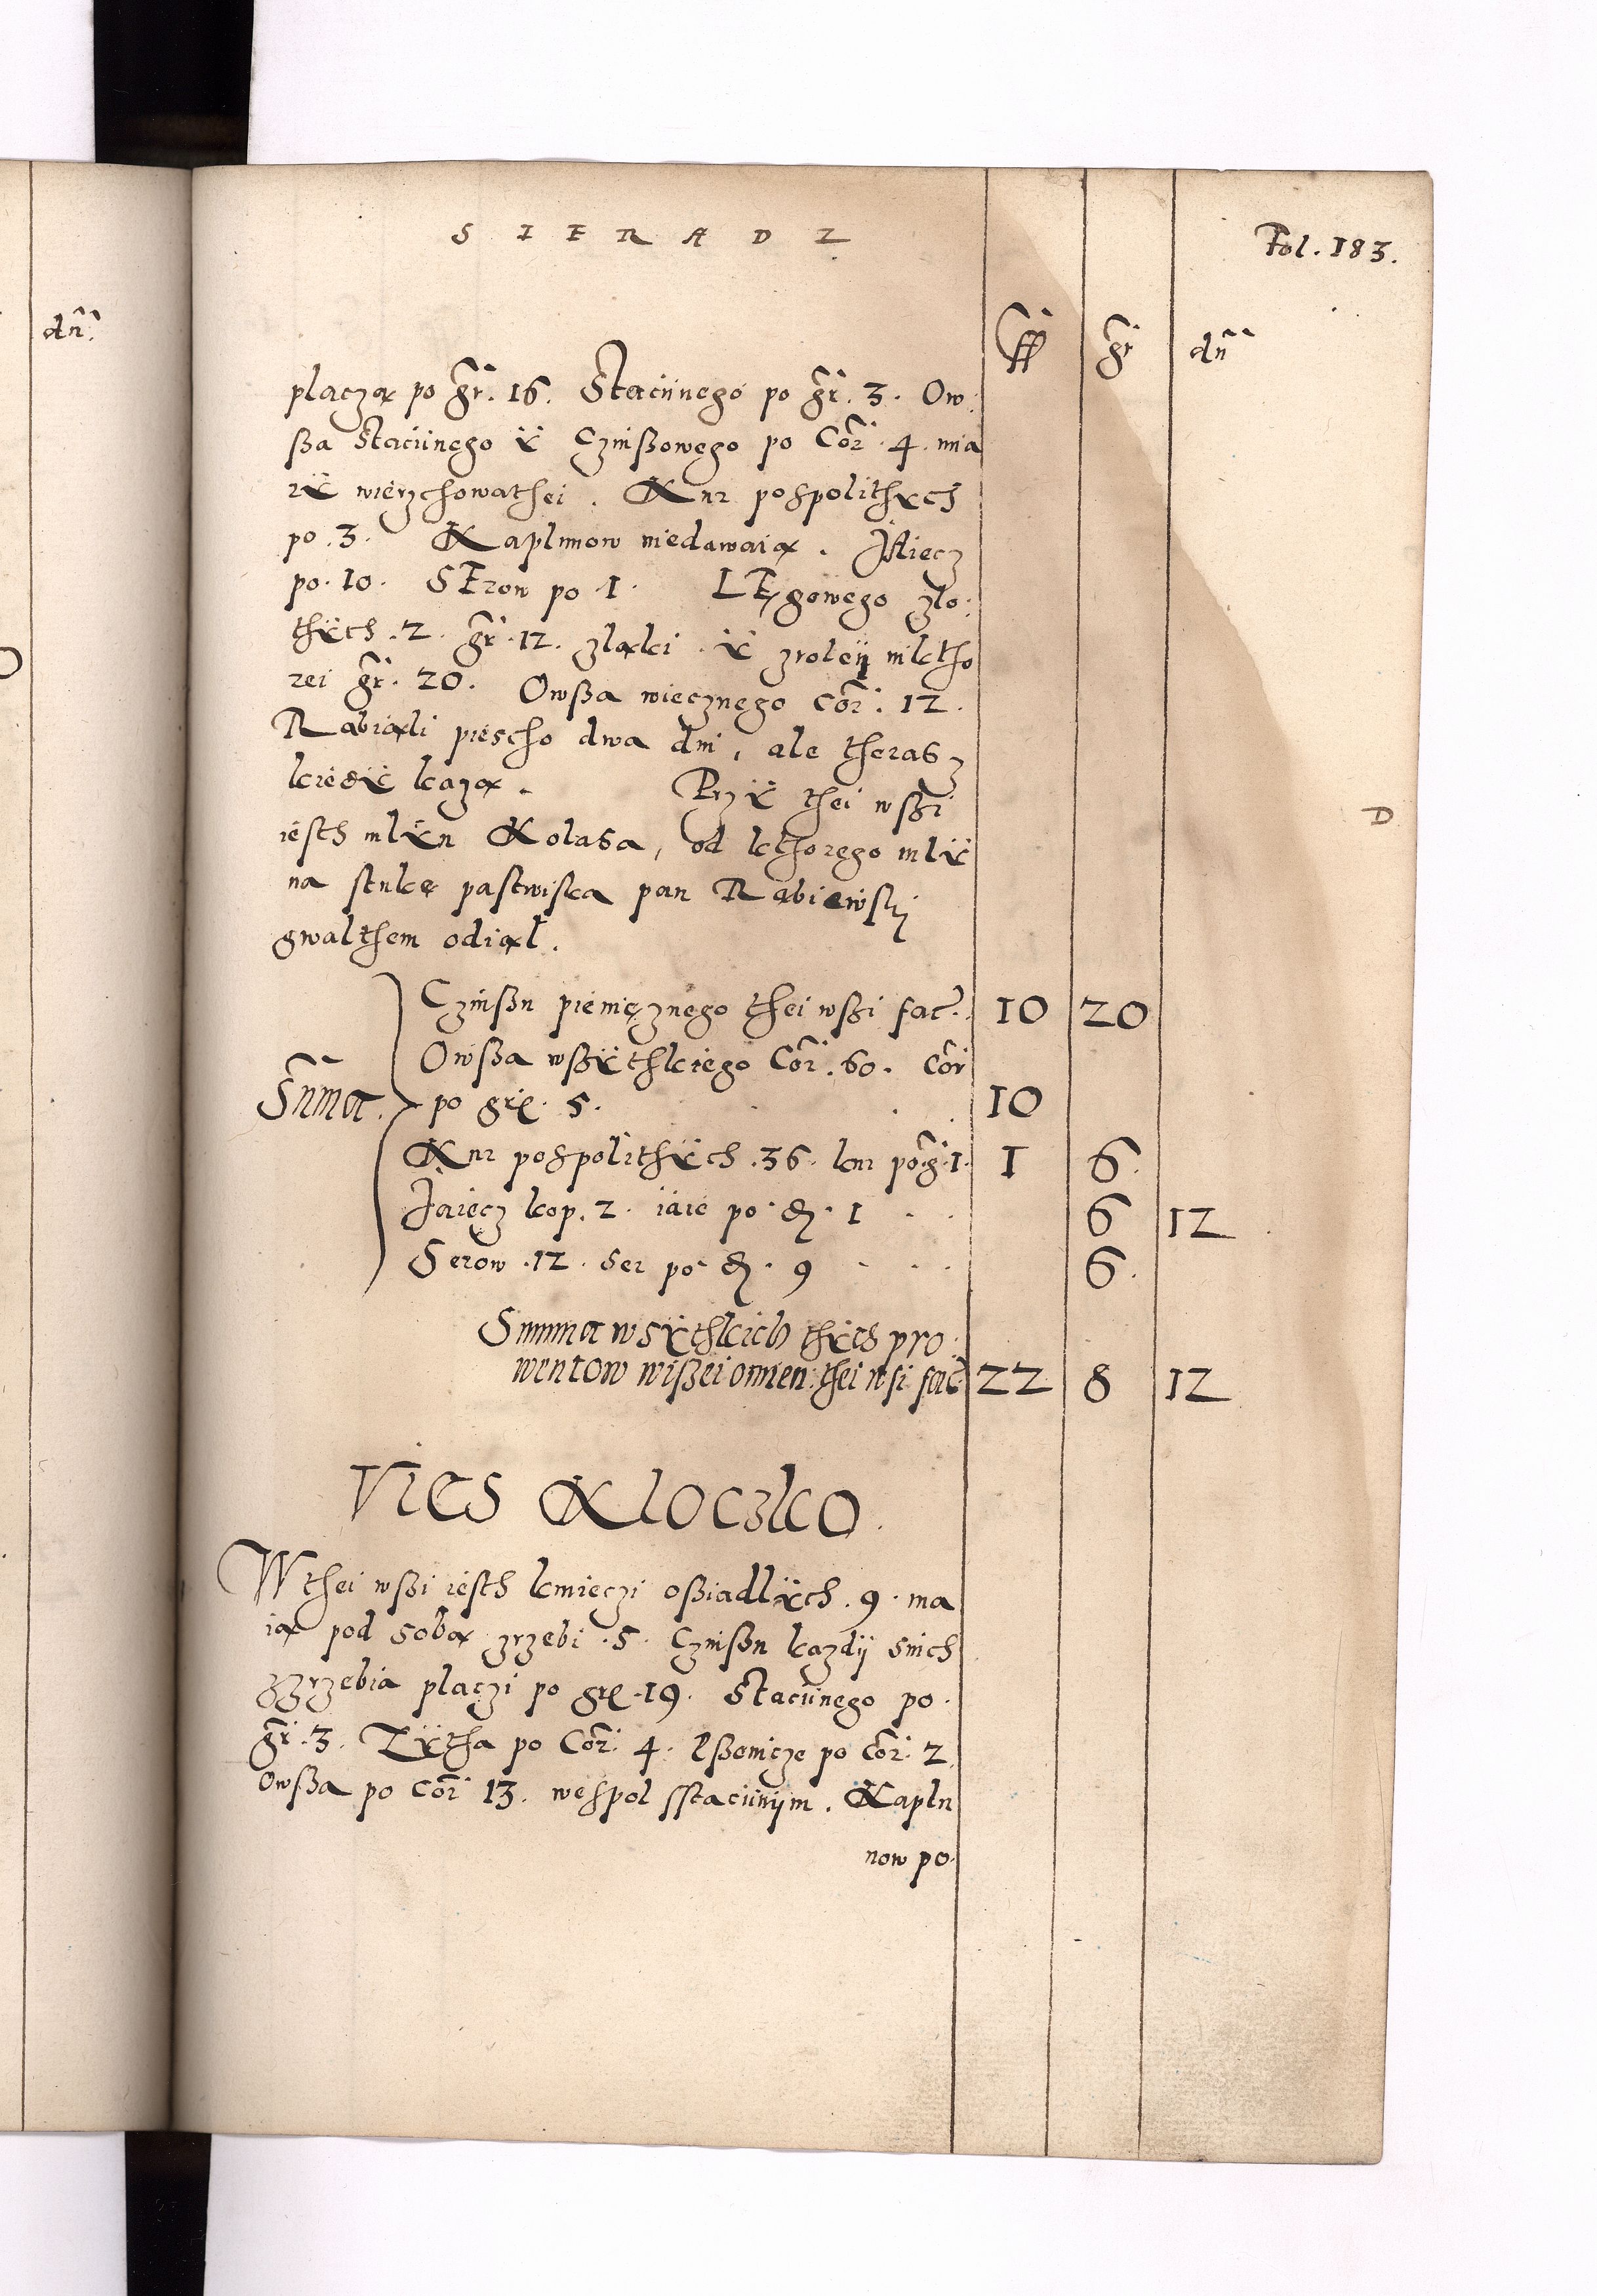 SIERADZ
Fol. 183.
dñ.
ff gr dñ
placzą po gr. 16. Staciinego po gr. 3. Ow:
ßa Staciinego ÿ Czinßowego po Cor. 4. mia
rÿ wierzchowathei. Kur pospolithych
po. 3. Kaplunow niedawaią. Jaiecz
po. 10. SErow po 1. LEgowego zlo:
thÿch. 2. gr. 12. zląki. ÿ zroleÿ niktho
rei gr. 20. Owßa wiecznego cor. 12.
Rabiąli piescho dwa dni, ale theras z
kiesÿ kazą. Przÿ thei wßi
iesth mlÿn Kolasa, od kthorego mlÿ
na stukę pastwiska pan Rabiewskj
gwalthem odiął.
Czinßu pieniężnego thei wßi fac. 10 20
Owßa wßÿthkiego Cor. 60. Cor
Suma. po gr. 5. 10
Kur pospolithÿch. 36. kur po gr. 1. 1 6.
Jaiecz kop. 2. iaie po d. 1 6 12
Serow. 12. ser po d. 9 6.
Summa wsÿthkich thÿch pro
wentow wißei omien: thei wsi fac. 22 8 12
VIES KLOCZKO.
W thei wßi iesth kmieczi oßiadlÿch. 9. ma
ią pod sobą zrzebi. 5. Czinßu kazdÿ snich
zzrzebia placzi po gr. 19. Staciinego po.
gr. 3. Zÿtha po Cor. 4. Pßenicze po cor. 2.
owßa po cor 13. wespol sstaciinÿm. Kaplu
now po
D